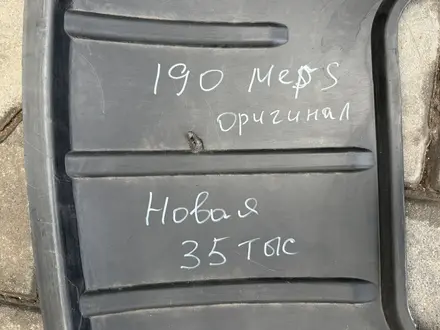 190 мерs
оригинал
Новая
35 тыс